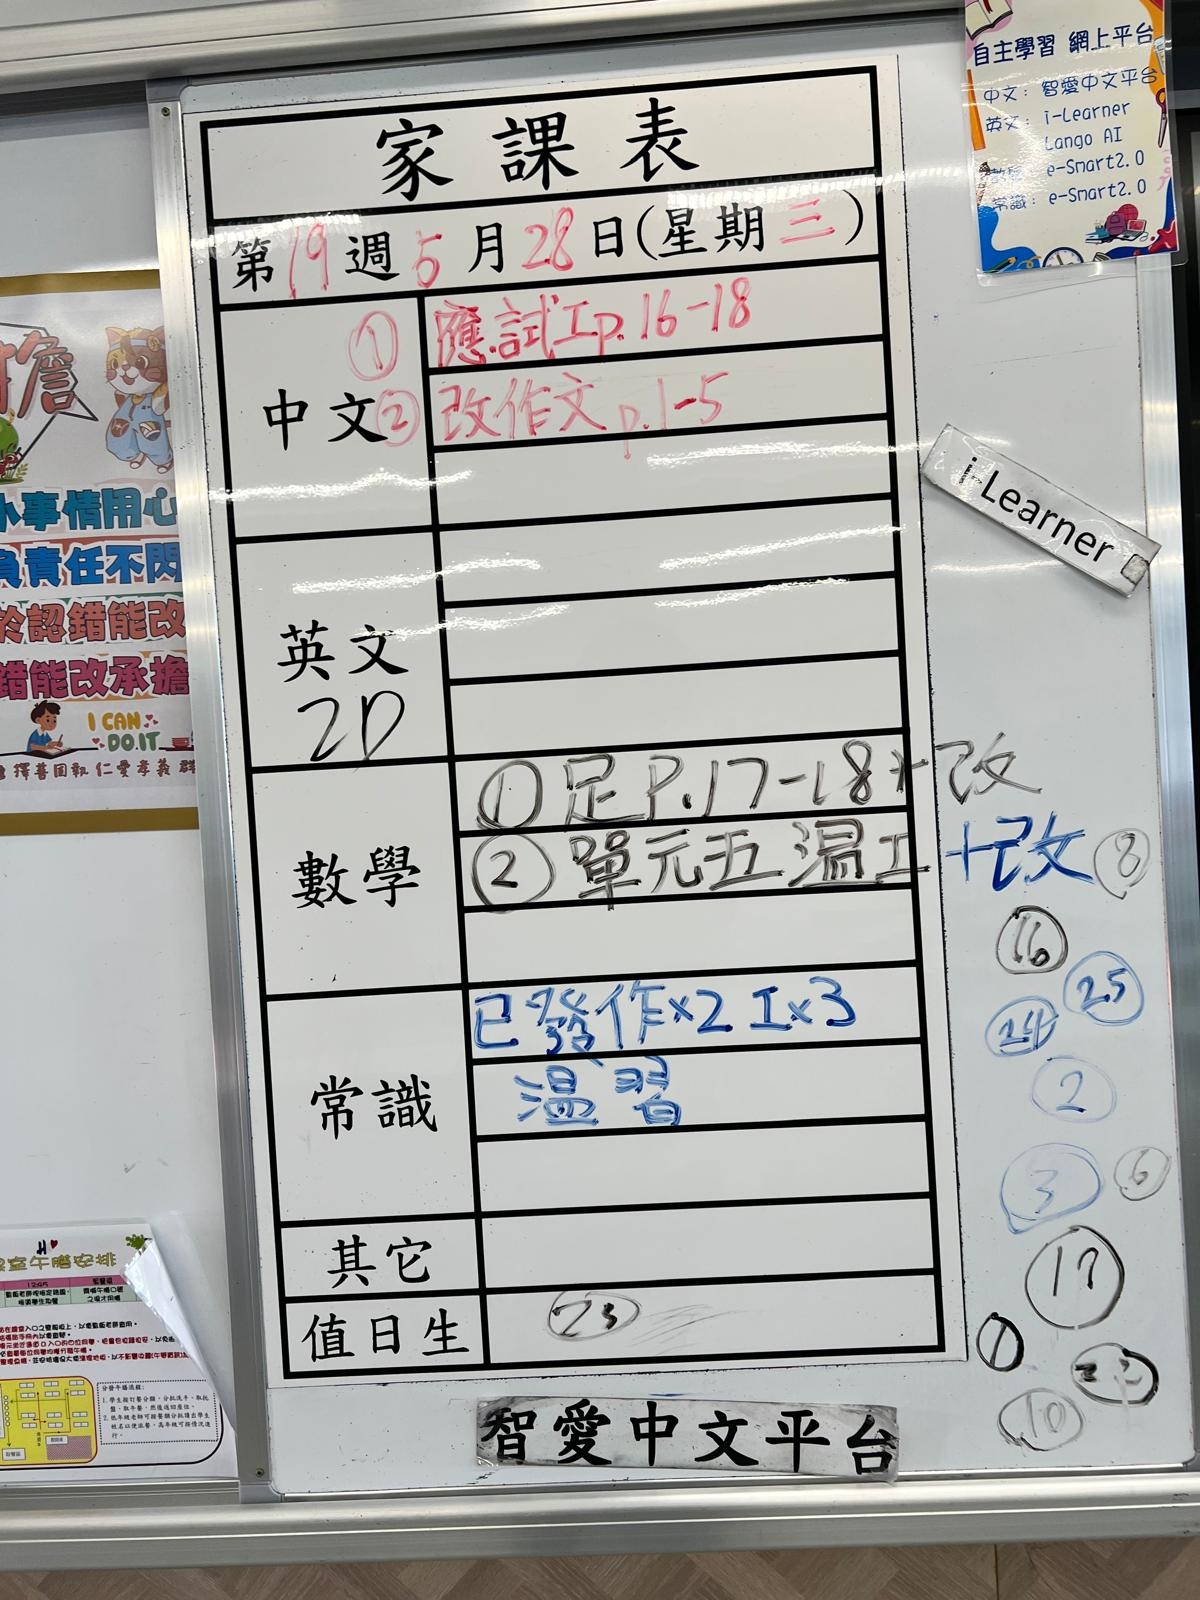 家課表
第19週5月28日(星期三)
中文
① 應試工p.16-18
② 改作文p.1-5
英文
2D
數學
① 足P.17-18+改
② 單元五溫工+改
常識
已發作x2 工x3
溫習
其它
值日生
23
智愛中文平台
i-Learner
⑧
⑯
㉕
㉔
②
③
⑥
⑰
①
⑩
自主學習 網上平台
中文：智愛中文平台
英文：i-Learner
Lango AI
數學：e-Smart2.0
常識：e-Smart2.0
小事情用心
負責任不閃
於認錯能改
錯能改承擔
I CAN
DO IT
擇善固執 仁愛孝義
室午膳安排
分發午膳流程：